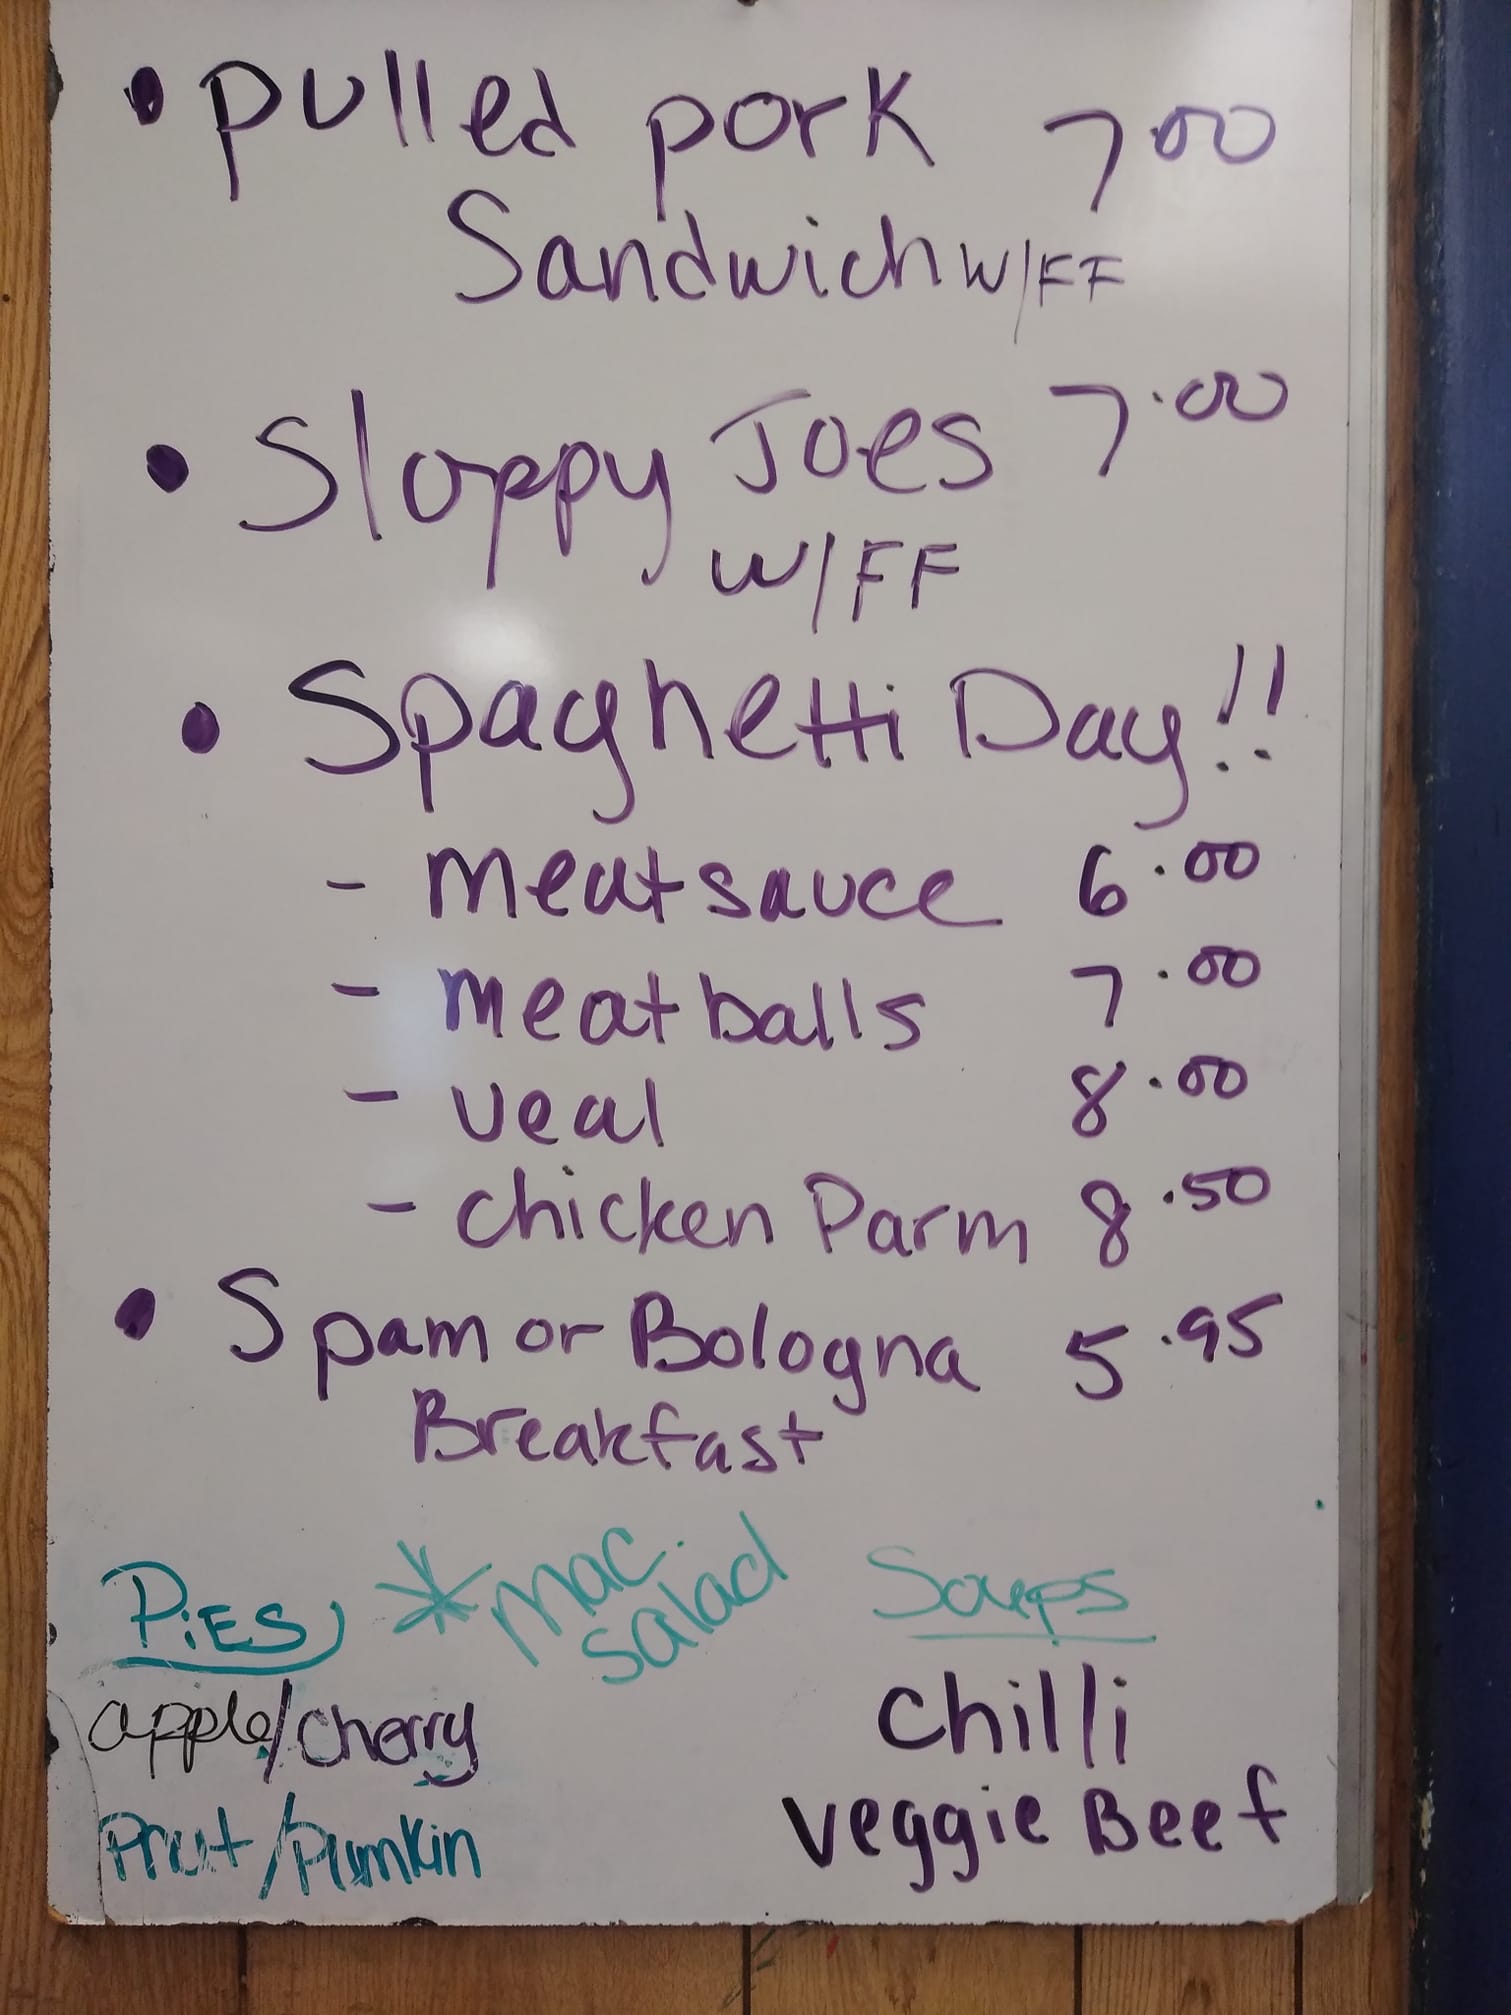 • Pulled pork 7.00
Sandwich w/FF
• Sloppy Joes 7.00
w/FF
• Spaghetti Day!!
- meatsauce 6.00
- meatballs 7.00
- veal 8.00
- chicken Parm 8.50
• Spam or Bologna 5.95
Breakfast
PiES
apple/cherry
/Pumkin
* mac.
salad
Soups
chilli
veggie Beef